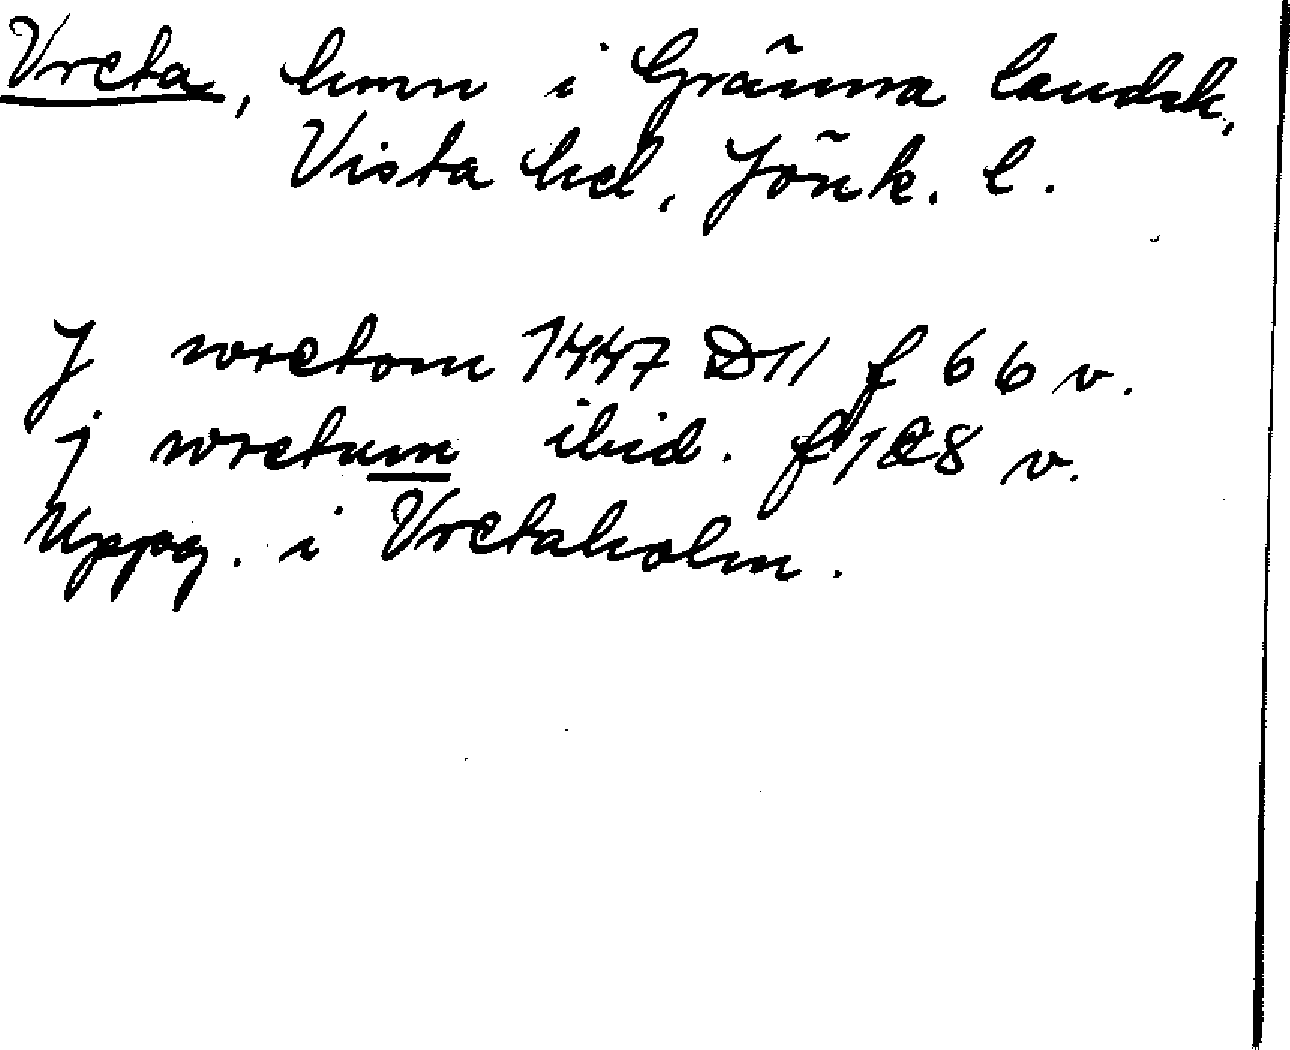 Vreta, hmn i Gränna landsk,
Vista hd, Jönk. l.
J wretom 1447 D11 f 66 v.
j wretum ibid. f 128 v.
Uppg. i Vretaholm.